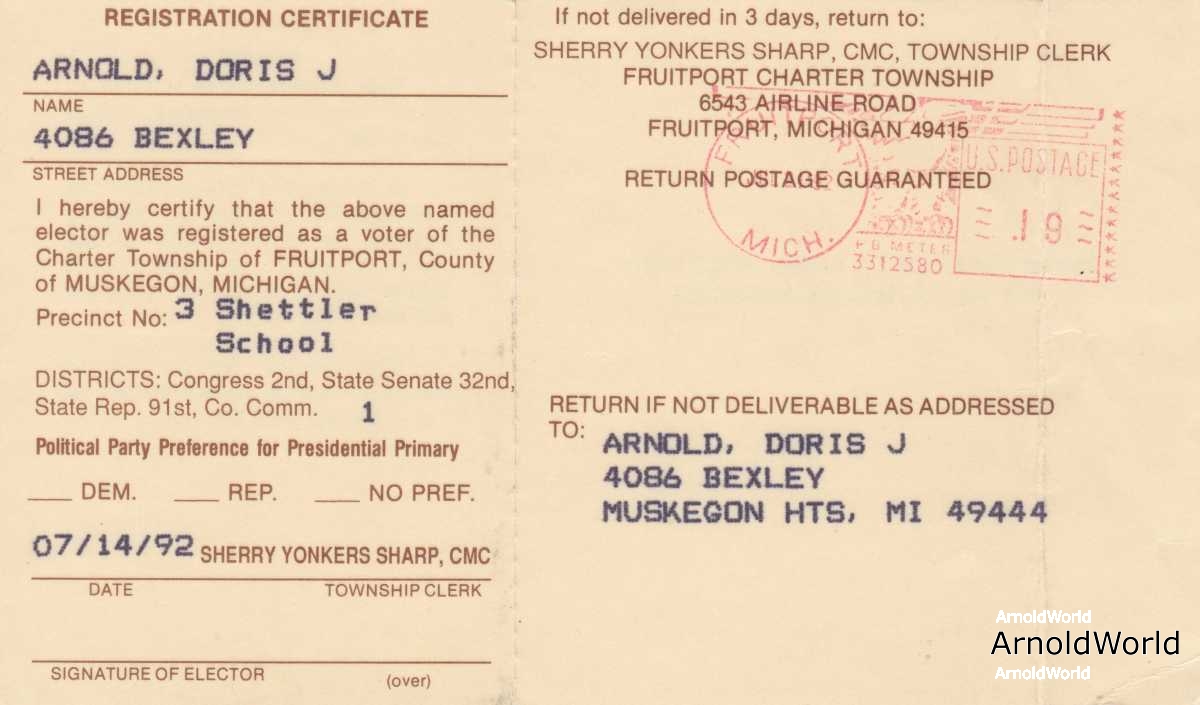 REGISTRATION CERTIFICATE
ARNOLD, DORIS J
NAME
4086 BEXLEY
STREET ADDRESS
I hereby certify that the above named
elector was registered as a voter of the
Charter Township of FRUITPORT, County
of MUSKEGON, MICHIGAN.
Precinct No: 3 Shettler
School
DISTRICTS: Congress 2nd, State Senate 32nd,
State Rep. 91st, Co. Comm. 1
Political Party Preference for Presidential Primary
___ DEM. ___ REP. ___ NO PREF.
07/14/92 SHERRY YONKERS SHARP, CMC
DATE TOWNSHIP CLERK
SIGNATURE OF ELECTOR
(over)
If not delivered in 3 days, return to:
SHERRY YONKERS SHARP, CMC, TOWNSHIP CLERK
FRUITPORT CHARTER TOWNSHIP
6543 AIRLINE ROAD
FRUITPORT, MICHIGAN 49415
RETURN POSTAGE GUARANTEED
FRUITPORT
MICH.
U.S. POSTAGE
.19
PB METER
3312580
RETURN IF NOT DELIVERABLE AS ADDRESSED
TO: ARNOLD, DORIS J
4086 BEXLEY
MUSKEGON HTS, MI 49444
ArnoldWorld
ArnoldWorld
ArnoldWorld